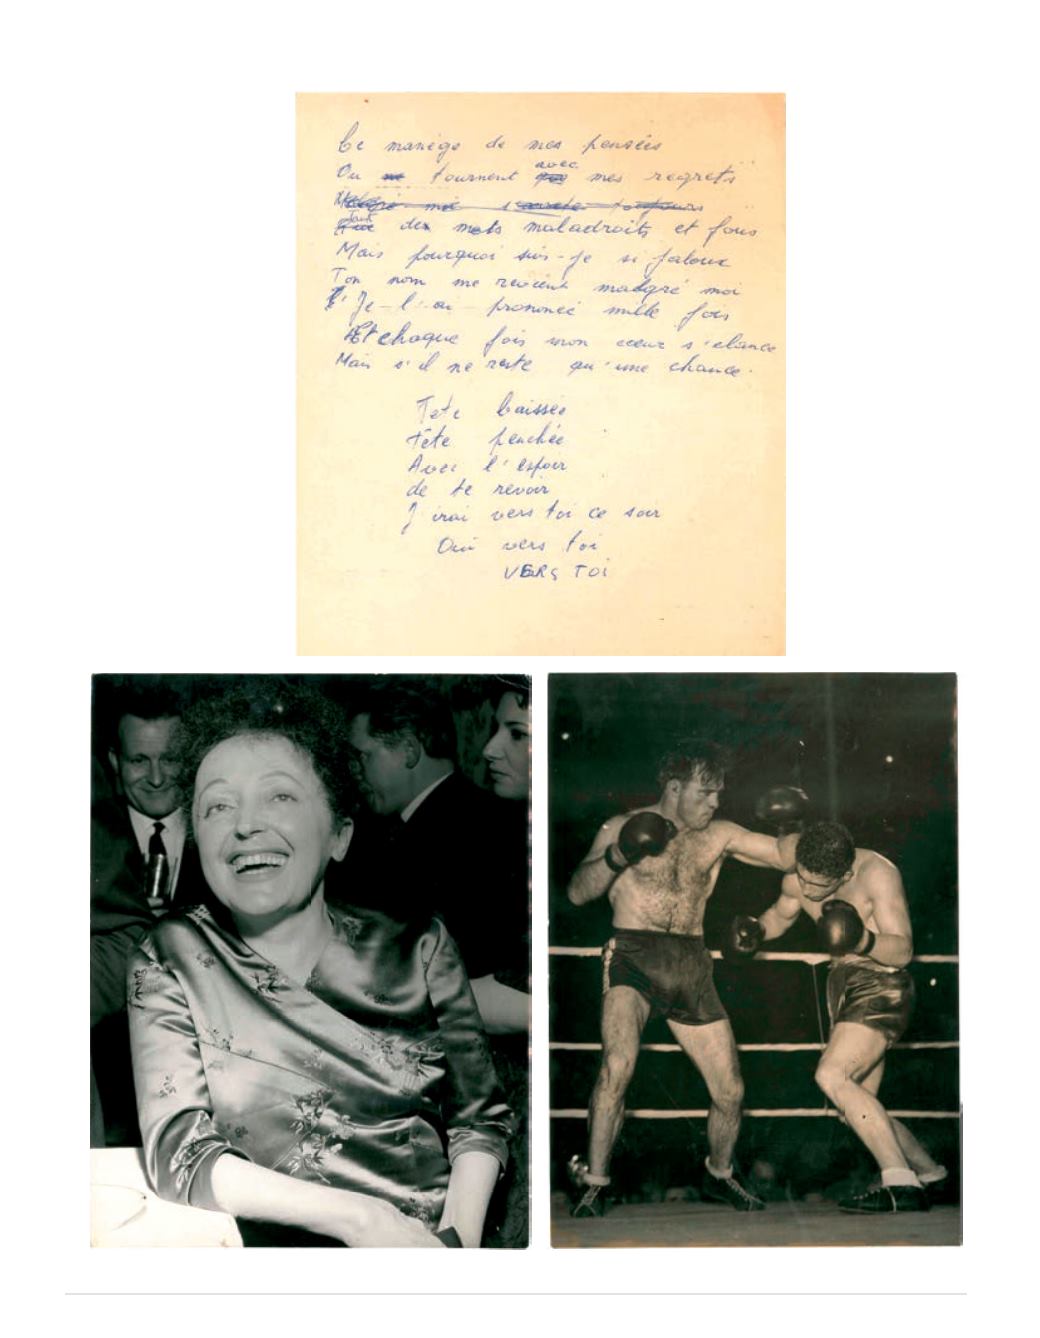 Ce manège de mes pensées
Ou ne tournent avec que mes regrets
Malgré moi secrète toujours
Tant Que des mots maladroits et fous
Mais pourquoi suis-je si jaloux
Ton nom me revient malgré moi
Je l'ai prononcé mille fois
Et chaque fois mon cœur s'élance
Mais s'il ne reste qu'une chance.
Tete baissée
tête penchée
Avec l'espoir
de te revoir
J'irai vers toi ce soir
Oui vers toi
VERS TOI